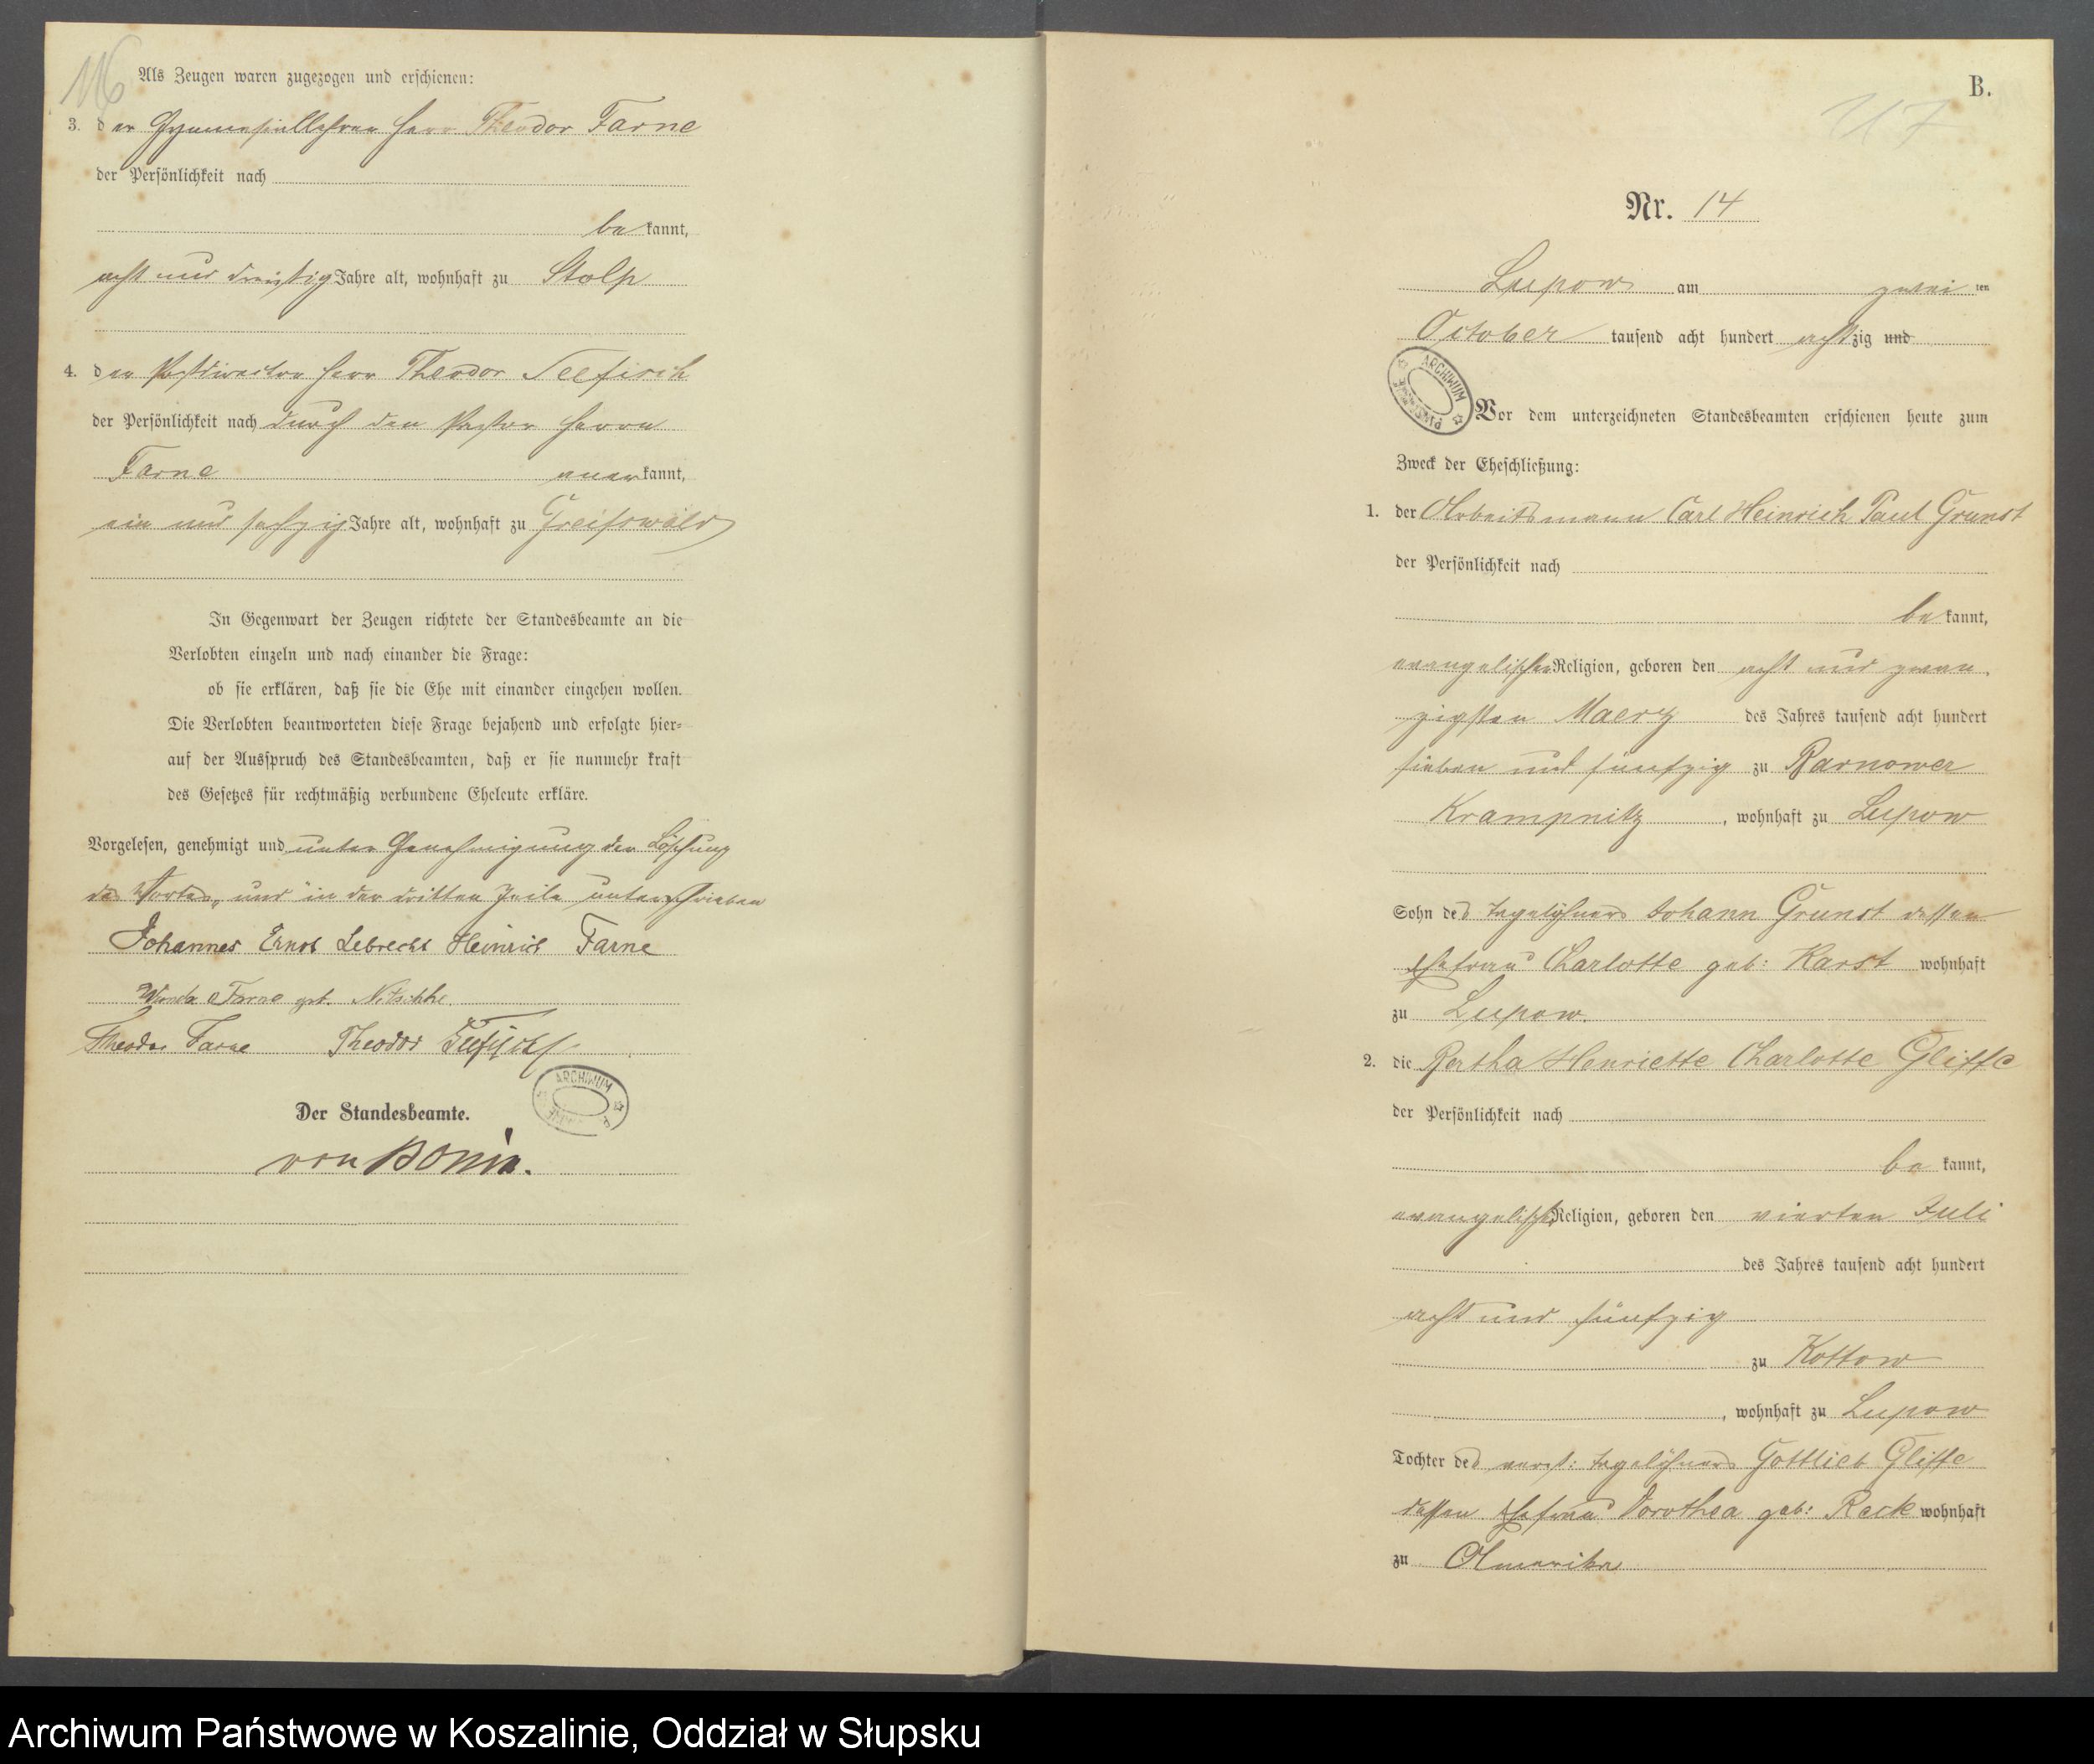 116
Als Zeugen waren zugezogen und erschienen:
3. der Gymnasiallehrer Herr Theodor Farne
der Persönlichkeit nach
bekannt,
acht und dreißig Jahre alt, wohnhaft zu Stolp
4. der Postdirector Herr Theodor Seefisch
der Persönlichkeit nach durch den Pastor Herrn
Farne anerkannt,
ein und sechzig Jahre alt, wohnhaft zu Greifswald
In Gegenwart der Zeugen richtete der Standesbeamte an die
Verlobten einzeln und nach einander die Frage:
ob sie erklären, daß sie die Ehe mit einander eingehen wollen.
Die Verlobten beantworteten diese Frage bejahend und erfolgte hier-
auf der Ausspruch des Standesbeamten, daß er sie nunmehr kraft
des Gesetzes für rechtmäßig verbundene Eheleute erkläre.
Vorgelesen, genehmigt und unter Genehmigung der Löschung
des Wortes „und" in der dritten Zeile unterschrieben
Johannes Ernst Lebrecht Heinrich Farne
Wanda Farne geb. Nitschke.
Theodor Farne Theodor Seefisch
ARCHIWUM
Der Standesbeamte.
von Bonin.
B.
117
Nr. 14
Lupow am zweiten
October tausend acht hundert achtzig und
ARCHIWUM
Vor dem unterzeichneten Standesbeamten erschienen heute zum
Zweck der Eheschließung:
1. der Arbeitsmann Carl Heinrich Paul Grunst
der Persönlichkeit nach
bekannt,
evangelischer Religion, geboren den acht und zwan
zigsten Maerz des Jahres tausend acht hundert
sieben und fünfzig zu Rarnower
Krampnitz, wohnhaft zu Lupow
Sohn des Tagelöhners Johann Grunst dessen
Ehefrau Charlotte geb: Karst wohnhaft
zu Lupow.
2. die Bertha Henriette Charlotte Gliffe
der Persönlichkeit nach
bekannt,
evangelischer Religion, geboren den vierten Juli
des Jahres tausend acht hundert
acht und fünfzig
zu Kottow
, wohnhaft zu Lupow
Tochter des verst: Tagelöhners Gottlieb Gliffe
dessen Ehefrau Dorothea geb: Reck wohnhaft
zu Amerika
Archiwum Państwowe w Koszalinie, Oddział w Słupsku